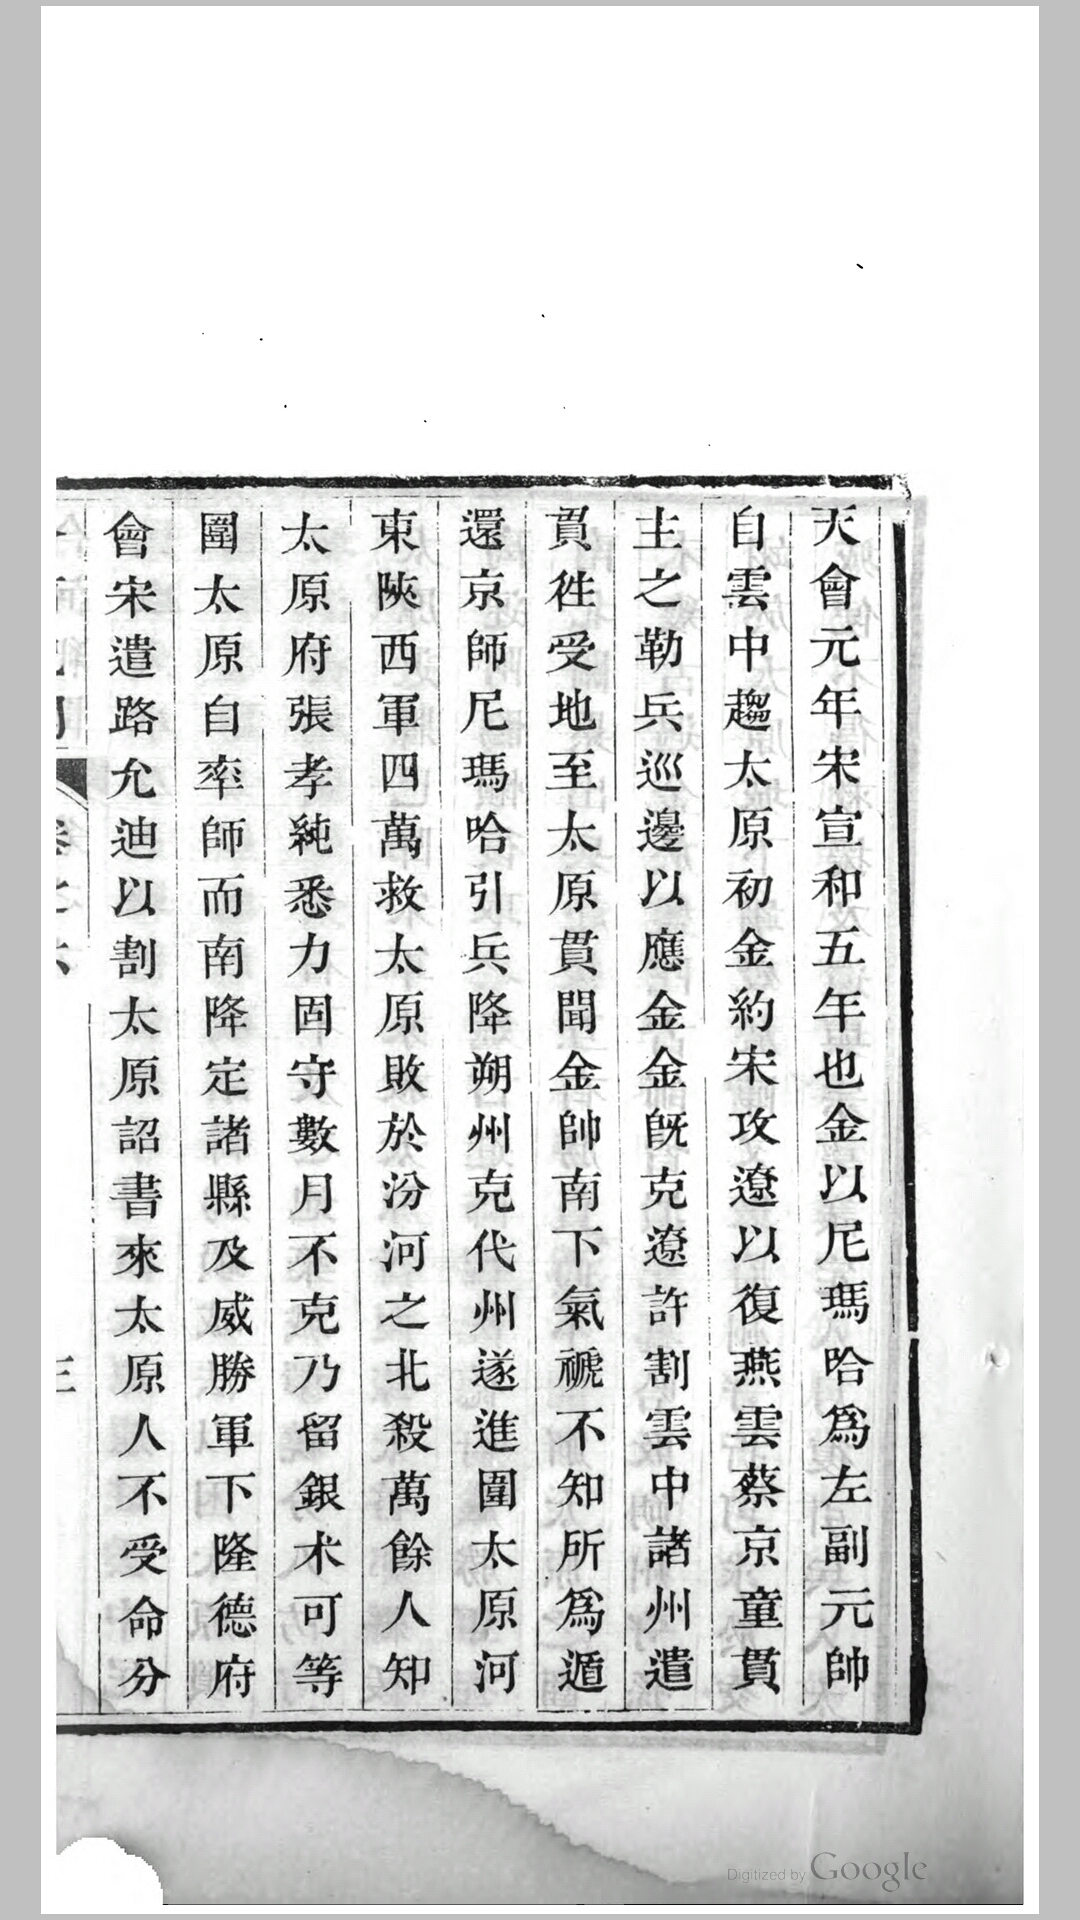 天會元年宋宣和五年也金以尼瑪哈爲左副元帥
自雲中趨太原初金約宋攻遼以復燕雲蔡京童貫
主之勒兵巡邊以應金金旣克遼許割雲中諸州遣
貫徃受地至太原貫聞金帥南下氣禠不知所爲遁
還京師尼瑪哈引兵降朔州克代州遂進圍太原河
東陝西軍四萬救太原敗於汾河之北殺萬餘人知
太原府張孝純悉力固守數月不克乃留銀朮可等
圍太原自率師而南降定諸縣及威勝軍下隆德府
會宋遣路允迪以割太原詔書來太原人不受命分
卷之六
三
Digitized by Google